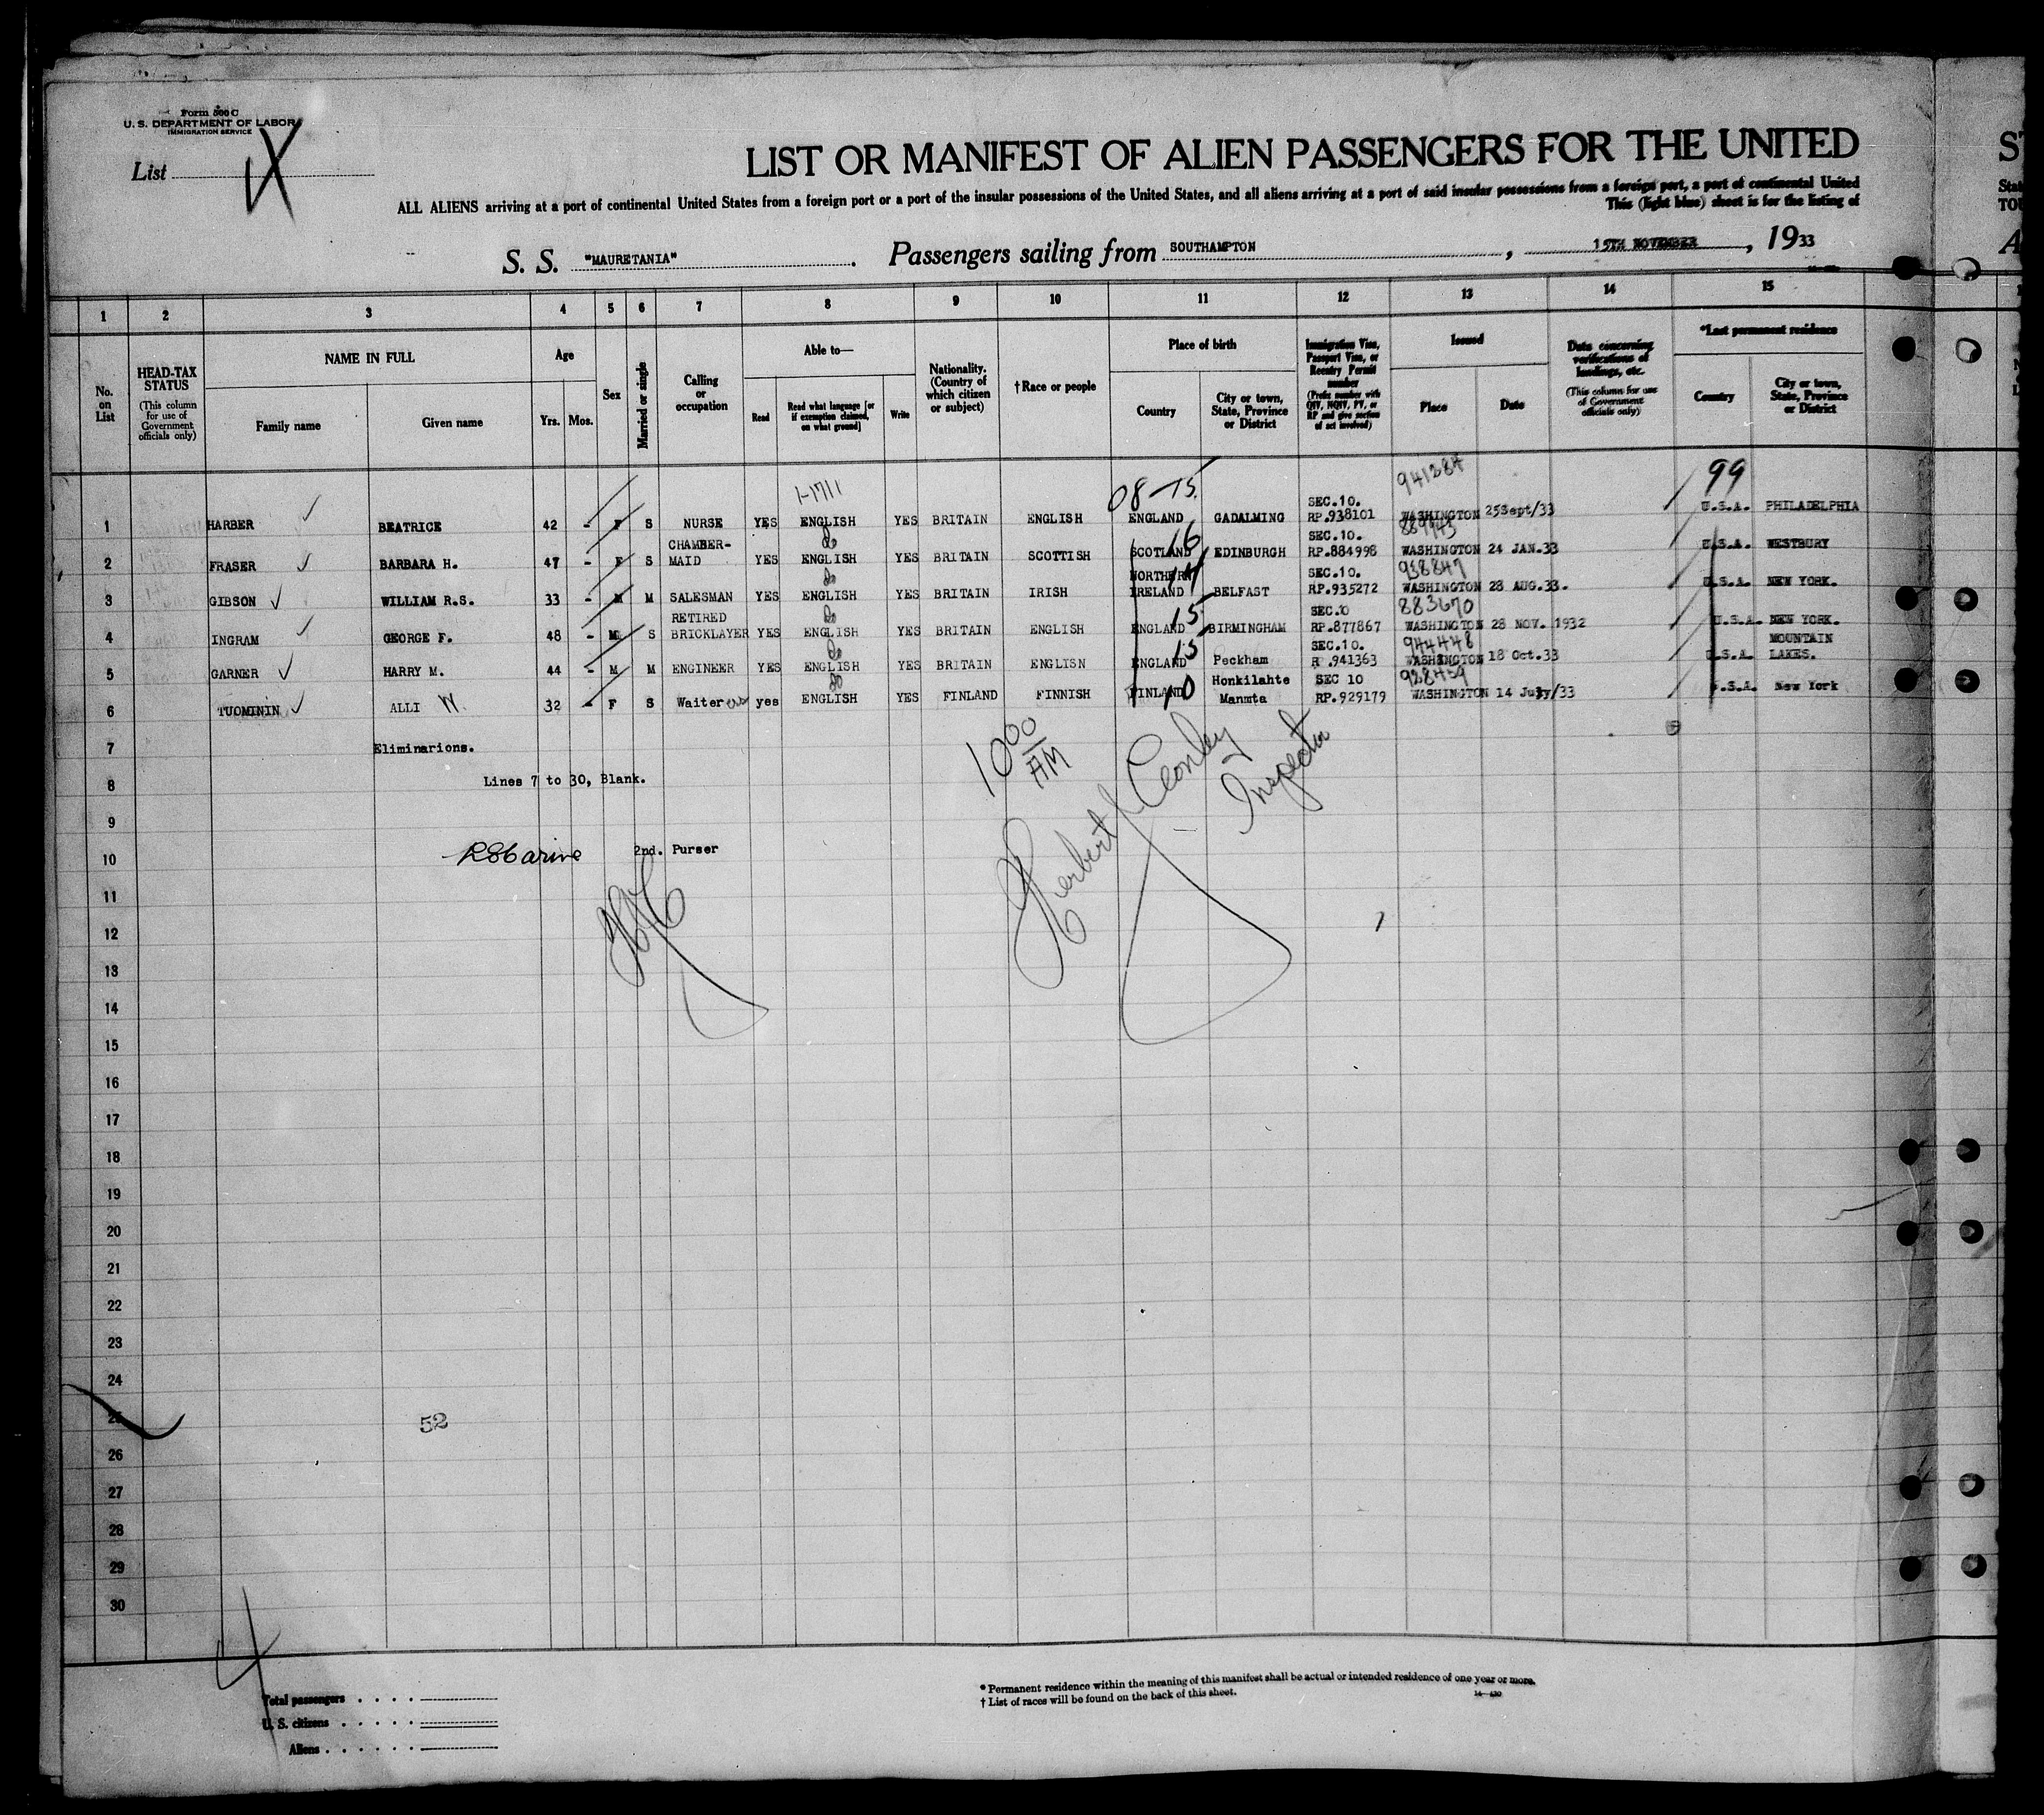 Form 500 C
U. S. DEPARTMENT OF LABOR
IMMIGRATION SERVICE
List IX
LIST OR MANIFEST OF ALIEN PASSENGERS FOR THE UNITED
ALL ALIENS arriving at a port of continental United States from a foreign port or a port of the insular possessions of the United States, and all aliens arriving at a port of said insular possessions from a foreign port, a port of continental United
This (light blue) sheet is for the listing of
S. S. "MAURETANIA". Passengers sailing from SOUTHAMPTON, 15TH NOVEMBER, 1933
1 2 3 4 5 6 7 8 9 10 11 12 13 14 15
No. on List
HEAD-TAX STATUS (This column for use of Government officials only)
NAME IN FULL
Family name Given name
Age
Yrs. Mos.
Sex
Married or single
Calling or occupation
Able to—
Read Read what language [or if exemption claimed, on what ground] Write
Nationality. (Country of which citizen or subject)
† Race or people
Place of birth
Country City or town, State, Province or District
Immigration Visa, Passport Visa, or Reentry Permit number (Prefix number with QIV, NQIV, PV, or RP and give section of act involved)
Issued
Place Date
Data concerning verifications of landings, etc. (This column for use of Government officials only)
*Last permanent residence
Country City or town, State, Province or District
1-1711 08-15 941284 99
1 HARBER BEATRICE 42 - F S NURSE YES ENGLISH YES BRITAIN ENGLISH ENGLAND GADALMING SEC.10. RP.938101 WASHINGTON 25Sept/33 U.S.A. PHILADELPHIA
do 16 889943
2 FRASER BARBARA H. 47 - F S CHAMBER-MAID YES ENGLISH YES BRITAIN SCOTTISH SCOTLAND EDINBURGH SEC.10. RP.884998 WASHINGTON 24 JAN.33 U.S.A. WESTBURY
do 14 938847
3 GIBSON WILLIAM R.S. 33 - M M SALESMAN YES ENGLISH YES BRITAIN IRISH NORTHERN IRELAND BELFAST SEC.10. RP.935272 WASHINGTON 28 AUG.33. U.S.A. NEW YORK.
do 15 883670
4 INGRAM GEORGE F. 48 - M S RETIRED BRICKLAYER YES ENGLISH YES BRITAIN ENGLISH ENGLAND BIRMINGHAM SEC.0 RP.877867 WASHINGTON 28 NOV. 1932 U.S.A. NEW YORK.
do 15 944448
5 GARNER HARRY M. 44 - M M ENGINEER YES ENGLISH YES BRITAIN ENGLISN ENGLAND Peckham SEC.10. R .941363 WASHINGTON 18 Oct.33 U.S.A. MOUNTAIN LAKES.
do 10 928459
6 TUOMININ ALLI W. 32 - F S Waiter ess yes ENGLISH YES FINLAND FINNISH FINLAND Honkilahte Manmta SEC 10 RP.929179 WASHINGTON 14 July/33 U.S.A. New York
7 Eliminarions.
8 Lines 7 to 30, Blank.
10 00 AM
Herbert J Conley
Inspector
9
10 2nd. Purser
11
12
13
14
15
16
17
18
19
20
21
22
23
24
25 52
26
27
28
29
30
Total passengers
U. S. citizens
Aliens
* Permanent residence within the meaning of this manifest shall be actual or intended residence of one year or more.
† List of races will be found on the back of this sheet.